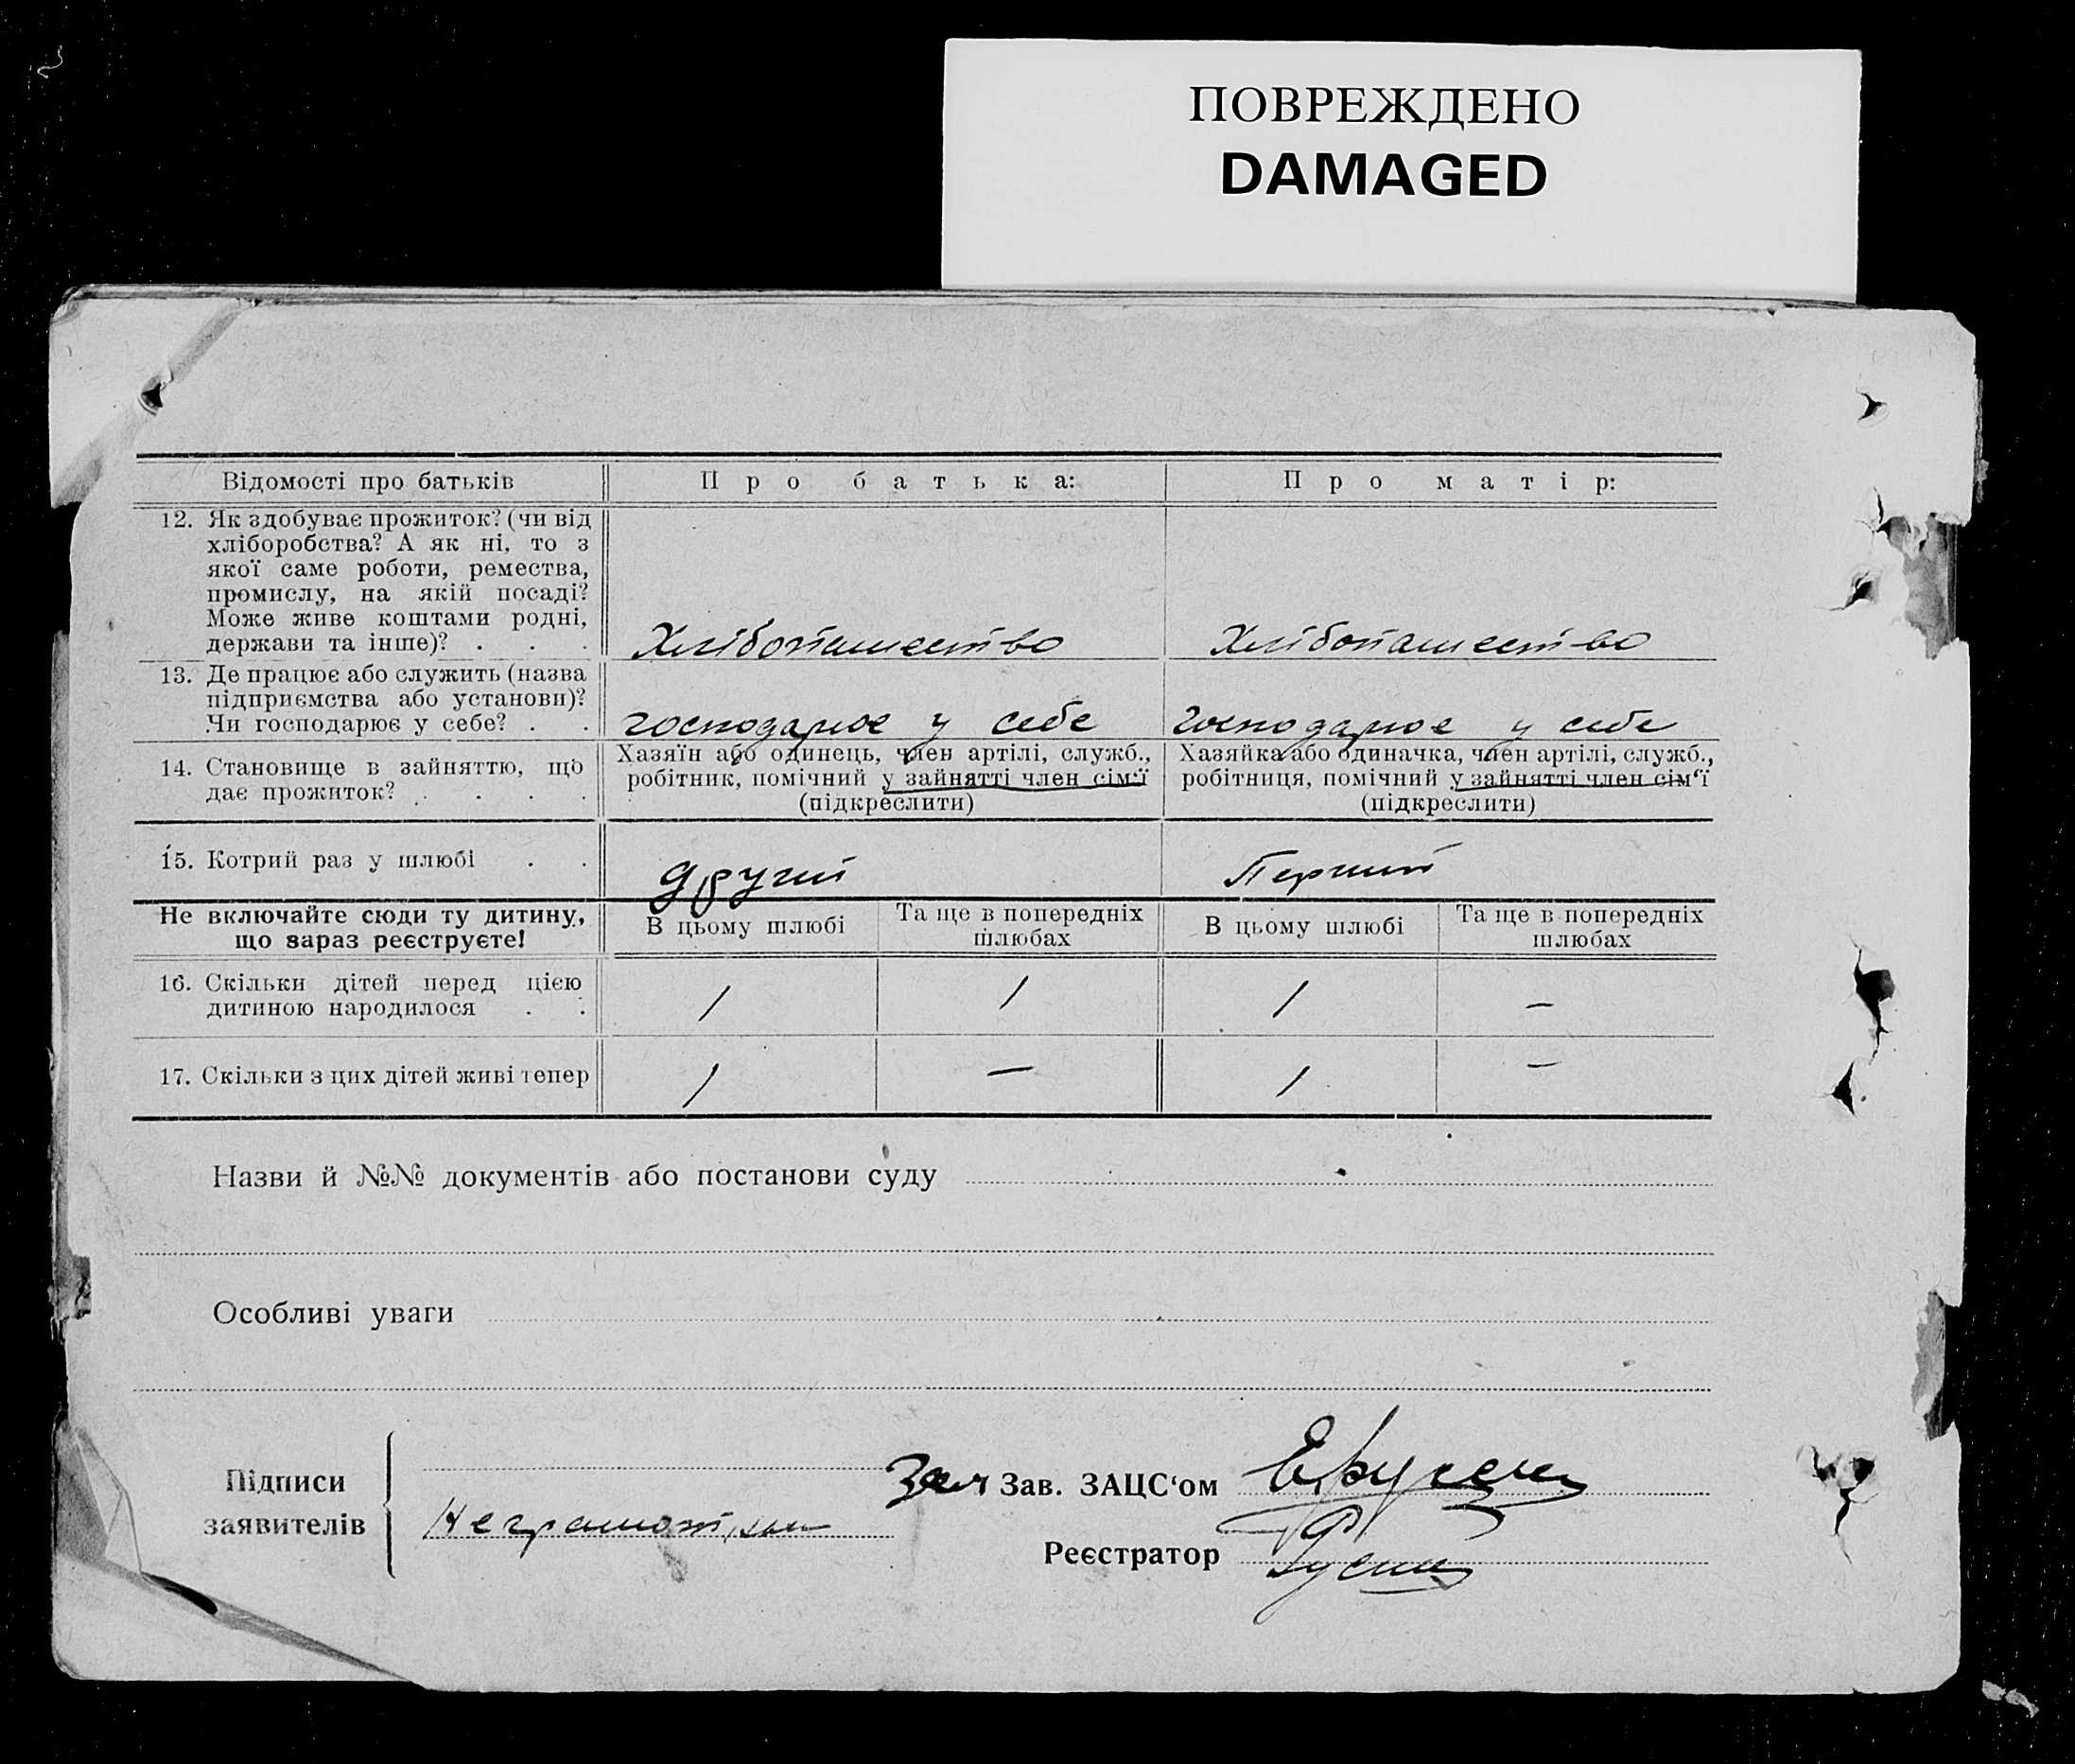 ПОВРЕЖДЕНО
DAMAGED
Відомості про батьків
Про батька:
Про матір:
12. Як здобуває прожиток? (чи від
хліборобства? А як ні, то з
якої саме роботи, ремества,
промислу, на якій посаді?
Може живе коштами родні,
держави та інше)? . . .
Хлібопашество
Хлібопашество
13. Де працює або служить (назва
підприємства або установи)?
Чи господарює у себе? . .
господарює у себе
господарює у себе
14. Становище в зайняттю, що
дає прожиток? . . . .
Хазяїн або одинець, член артілі, служб.,
робітник, помічний у зайнятті член сім'ї
(підкреслити)
Хазяйка або одиначка, член артілі, служб.,
робітниця, помічний у зайнятті член сім'ї
(підкреслити)
15. Котрий раз у шлюбі . .
другий
Перший
Не включайте сюди ту дитину,
що зараз реєструєте!
В цьому шлюбі
Та ще в попередніх
шлюбах
В цьому шлюбі
Та ще в попередніх
шлюбах
16. Скільки дітей перед цією
дитиною народилося . .
1
1
1
—
17. Скільки з цих дітей живі тепер
1
—
1
—
Назви й №№ документів або постанови суду
Особливі уваги
Підписи
заявителів
Неграмотний
Зам Зав. ЗАЦС'ом
Реєстратор